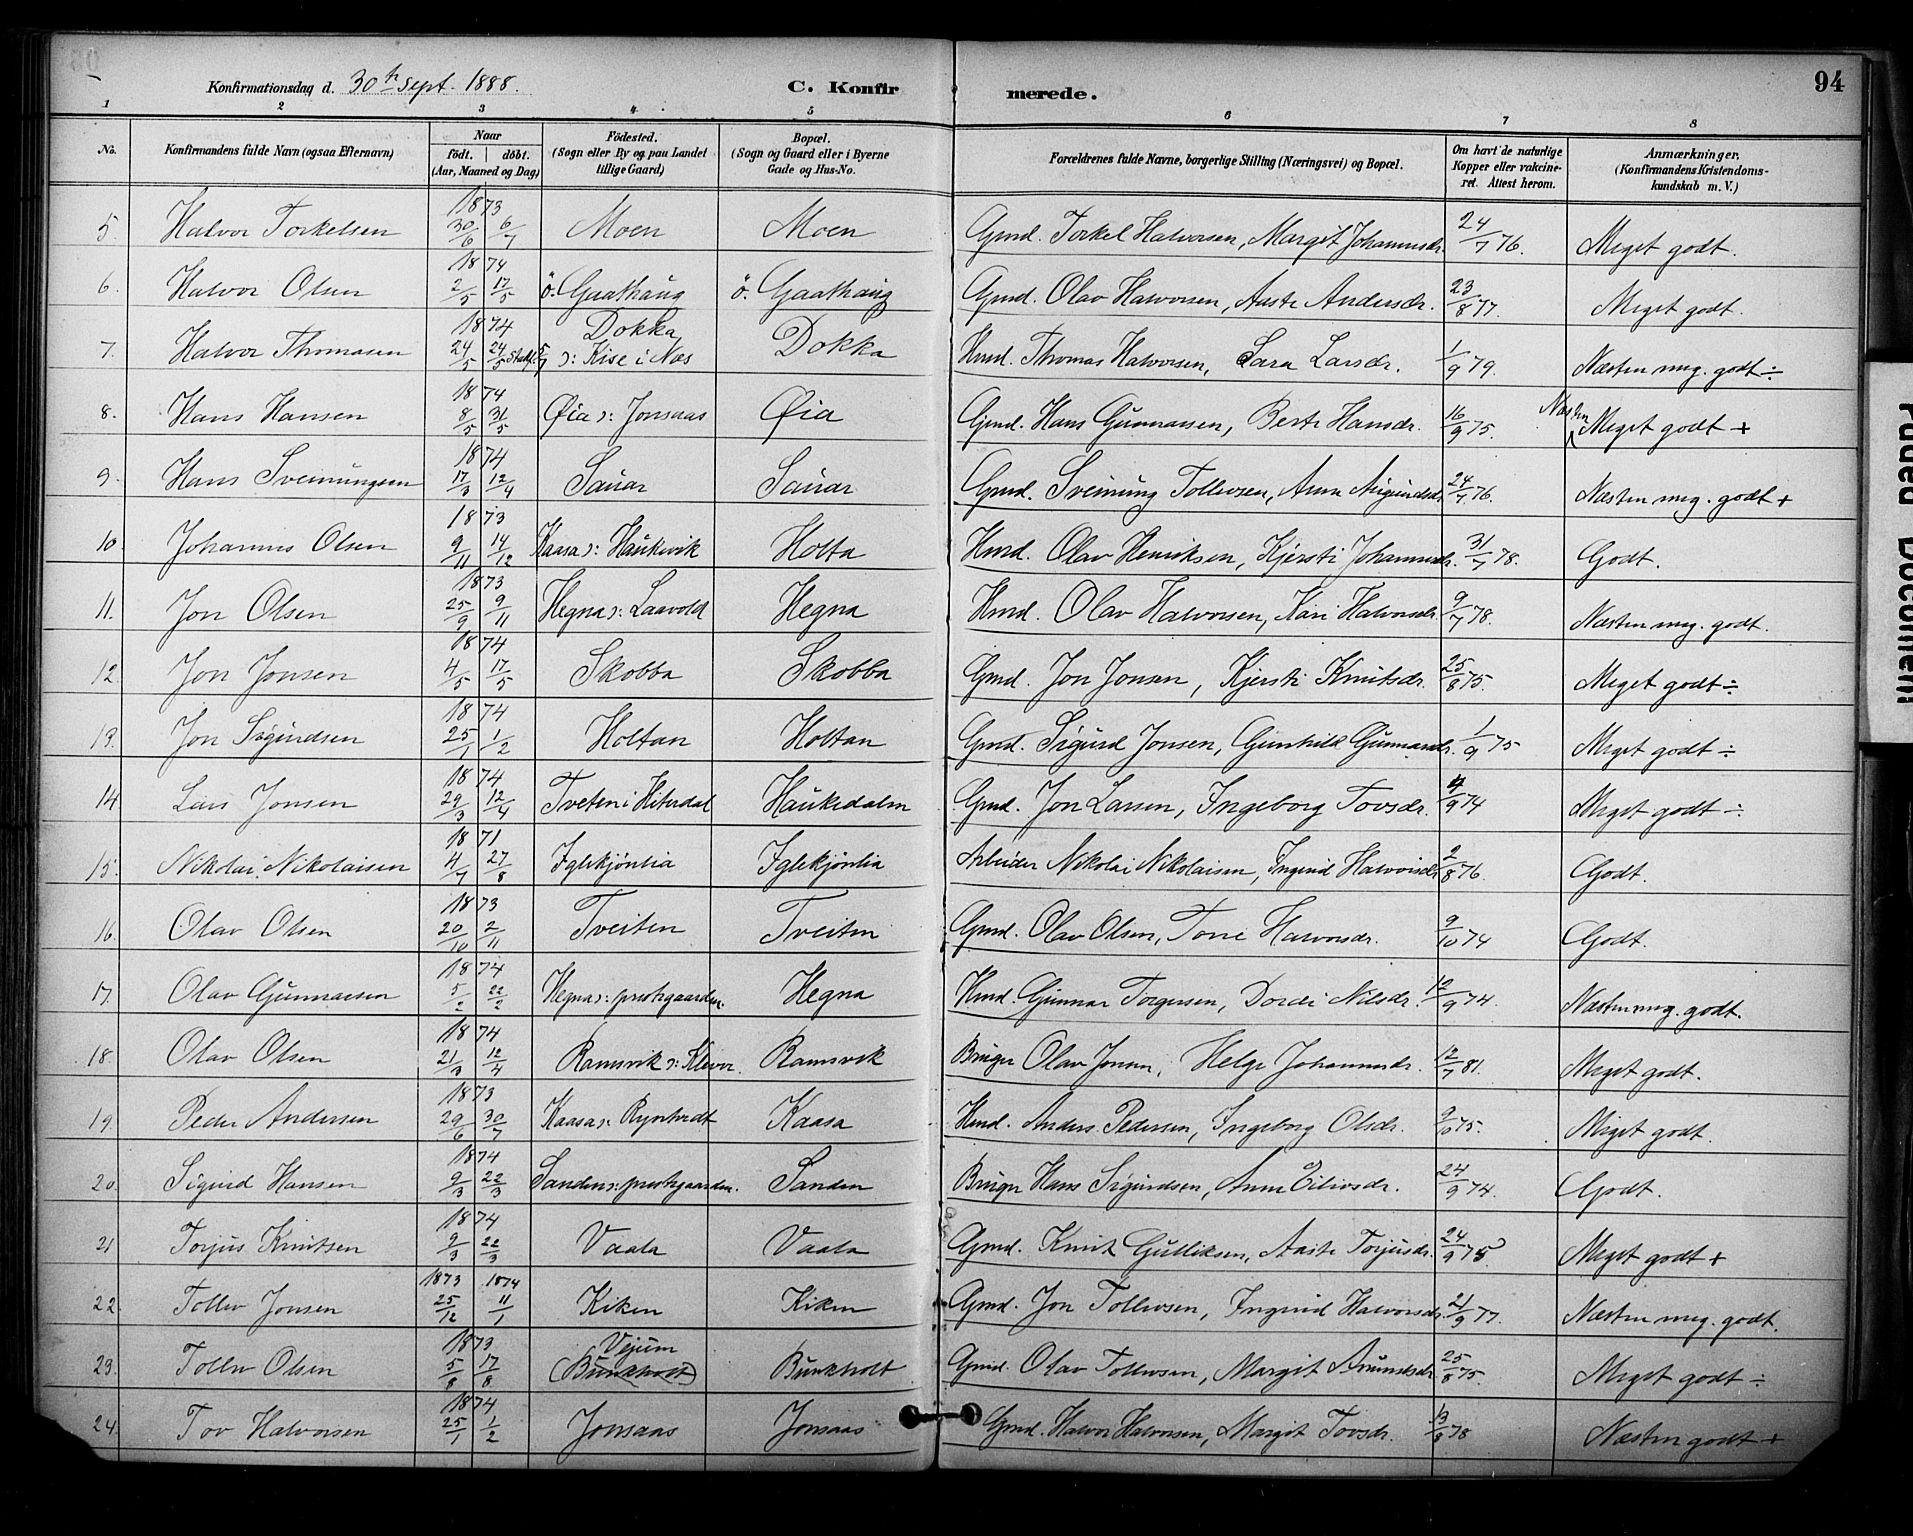 Konfirmationsdag d. 30th Sept. 1888. C. Konfirmerede. 94
1 2 3 4 5 6 7 8
No. Konfirmandens fulde Navn (ogsaa Efternavn) Naar født. døbt. (Aar, Maaned og Dag) Födested. (Sogn eller By og paa Landet tillige Gaard) Bopæl. (Sogn og Gaard eller i Byerne Gade og Hus-No. Forældrenes fulde Navne, borgerlige Stilling (Næringsvei) og Bopæl. Om havt de naturlige Kopper eller vakcineret. Attest herom. Anmærkninger. (Konfirmandens Kristendomskundskab m. V.)
5. Halvor Torkelsen 1873 30/6 6/7 Moen Moen Gmd. Torkel Halvorsen, Margit Johannesdr. 24/7 76. Meget godt.
6. Halvor Olsen 1874 2/5 17/5 ö. Gaathaug ö. Gaathaug Gmd. Olav Halvorsen, Aaste Andersdr. 23/8 77. Meget godt.
7. Halvor Thomasen 1874 24/5 24/5 5/7 Dokka ɔ: Kise i Næs Dokka Hmd. Thomas Halvorsen, Sara Larsdr. 1/9 79. Næsten meg. godt ÷
8. Hans Hansen 1874 8/5 31/5 Øia ɔ: Jonsaas Øia Gmd. Hans Gunnarsen, Berte Hansdr. 16/9 75. Næsten Meget godt +
9. Hans Sveinungsen 1874 17/3 12/4 Sauar Sauar Gmd. Sveinung Tollevsen, Anne 24/7 76. Næsten meg. godt +
10. Johannes Olsen 1873 9/11 14/12 Kaasa ɔ: Haukevik Holta Hmd. Olav Henriksen, Kjersti Johannesdr. 31/7 78. Godt.
11. Jon Olsen 1873 25/9 9/11 Hegna ɔ: Laavold Hegna Hmd. Olav Halvorsen, Kari Halvorsdr. 9/7 78. Næsten meg. godt.
12. Jon Jonsen 1874 4/5 17/5 Skobba Skobba Gmd. Jon Jonsen, Kjersti Knutsdr. 25/8 75. Meget godt ÷
13. Jon Sigurdsen 1874 25/1 1/2 Holtan Holtan Gmd. Sigurd Jonsen, Gunhild Gunnarsdr. 1/9 75 Meget godt ÷
14 Lars Jonsen 1874 29/3 12/4 Tveten i Hiterdal Haukedalen Gmd. Jon Larsen, Ingeborg Tovsdr. 4/9 74 Meget godt ÷
15. Nikolai Nikolaisen 1871 4/7 27/8 Iglekjønlia Iglekjønlia Arbeider Nikolai Nikolaisen, Ingerid Halvorsdr. 2/8 76. Godt.
16. Olav Olsen 1873 20/10 2/11 Tveiten Tveiten Gmd. Olav Olsen, Tone Halvorsdr. 9/10 74 Godt.
17. Olav Gunnarsen 1874 5/2 22/2 Hegna ɔ: prestegaarden. Hegna Hmd. Gunnar Torgersen, Dordi Nilsdr. 12/9 74. Næsten meg. godt.
18. Olav Olsen 1874 21/3 12/4 Ramsvik ɔ: Klevar. Ramsvik Bruger Olav Jonsen, Helge Johannesdr. 12/7 81. Meget godt.
19. Peder Andersen 1873 29/6 30/7 Kaasa ɔ: Kaasa Hmd. Anders Pedersen, Ingeborg Olsdr. 9/10 75. Meget godt.
20. Sigurd Hansen 1874 9/3 22/3 Sanden ɔ: prestegaarden. Sanden Bruger Hans Sigurdsen, Anne Eilivsdr. 24/9 74. Godt.
21 Torjus Knutsen 1874 9/3 22/3 Vaala Vaala Gmd. Knut Gulliksen, Aaste Torjusdr. 24/9 75 Meget godt +
22. Tollev Jonsen 1873 25/12 1874 11/1 Kiken Kiken Gmd. Jon Tollevsen, Ingerid Halvorsdr. 21/9 77. Næsten meg. godt.
23. Tollev Olsen 1873 5/8 17/8 Vejum (Bunkholt) Bunkholt Gmd. Olav Tollevsen, Margit Amundsdr. 25/8 75. Meget godt ÷
24. Tov Halvorsen 1874 25/1 1/2 Jonsaas Jonsaas Gmd. Halvor Halvorsen, Margit Tovsdr. 13/8 78 Næsten godt +